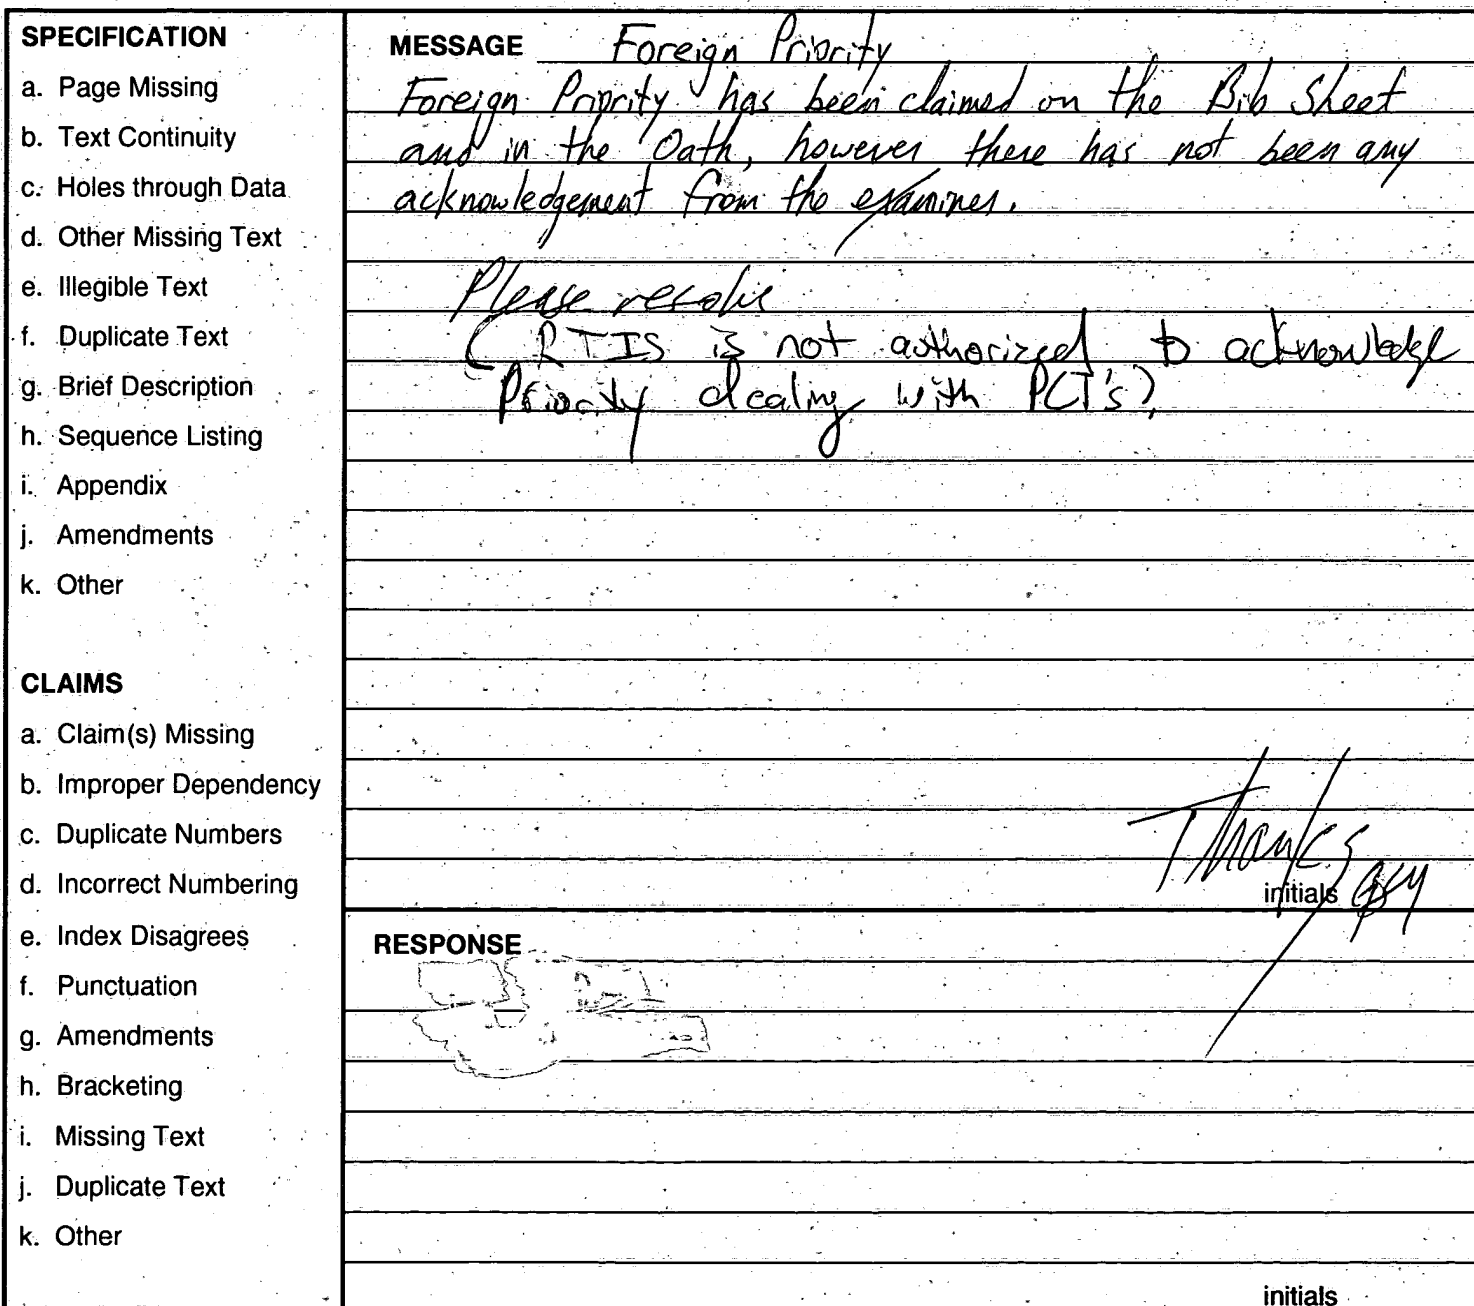 SPECIFICATION
a. Page Missing
b. Text Continuity
c. Holes through Data
d. Other Missing Text
e. Illegible Text
f. Duplicate Text
g. Brief Description
h. Sequence Listing
i. Appendix
j. Amendments
k. Other
CLAIMS
a. Claim(s) Missing
b. Improper Dependency
c. Duplicate Numbers
d. Incorrect Numbering
e. Index Disagrees
f. Punctuation
g. Amendments
h. Bracketing
i. Missing Text
j. Duplicate Text
k. Other
MESSAGE Foreign Priority
Foreign Priority has been claimed on the Bib Sheet
and in the Oath, however there has not been any
acknowledgement from the examiner.
Please resolve
( RTIS is not authorized to acknowledge
Priority dealing with PCT's)
Thanks
initials
RESPONSE
initials